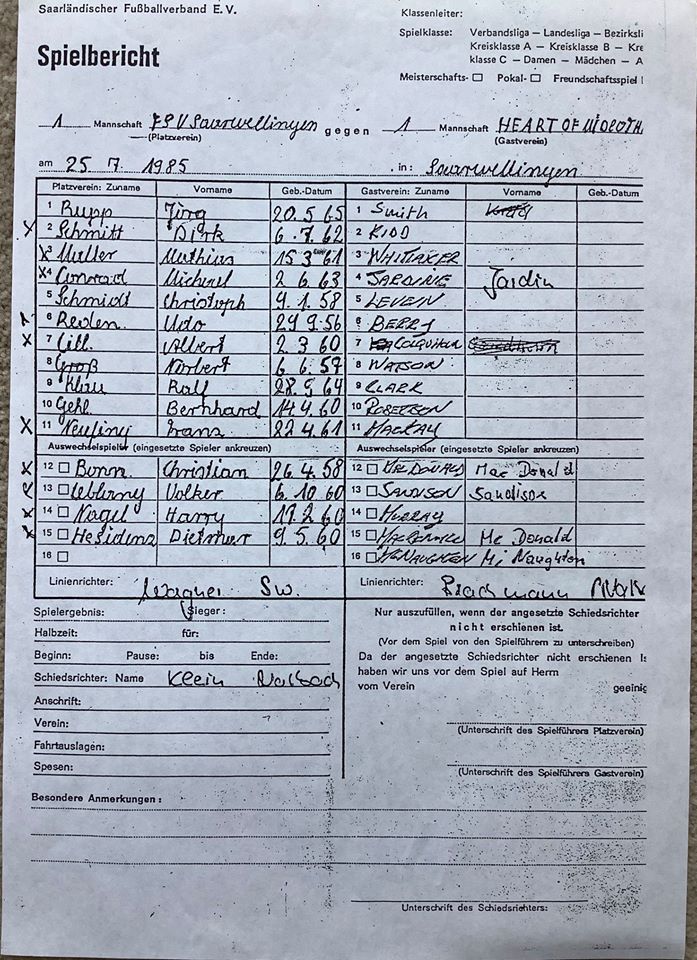 Saarländischer Fußballverband E. V.
Klassenleiter:
Spielklasse: Verbandsliga — Landesliga — Bezirksli
Kreisklasse A — Kreisklasse B — Kre
klasse C — Damen — Mädchen — A
Spielbericht
Meisterschafts- ☐ Pokal- ☐ Freundschaftsspiel
1 Mannschaft FSV Saarwellingen gegen 1 Mannschaft HEART OF
(Platzverein) (Gastverein)
am 25 7 1985 in: Saarwellingen
Platzverein: Zuname Vorname Geb.-Datum Gastverein: Zuname Vorname Geb.-Datum
1 Rupp Jörg 20.5 65 1 Smith
x 2 Schmitt Dirk 6.7.62 2 KIDD
x3 Müller Mathias 15 3 61 3 WHITTAKER
x4 Conrad Michael 2 6.63 4 JARDINE Jardin
5 Schmidt Christoph 9.1.58 5 LEVEIN
6 Reden Udo 29 9.56 6 BERRY
x 7 Lill Albert 2 3 60 7 COLQUHOUN
8 Groß Norbert 6 6.57 8 WATSON
9 Klau Ralf 28.5 64 9 CLARK
10 Gehl Bernhard 14.4.60 10 ROBERTSON
x 11 Franz 22 4.61 11 MACKAY
Auswechselspieler (eingesetzte Spieler ankreuzen) Auswechselspieler (eingesetzte Spieler ankreuzen)
x 12 ☐ Bonn Christian 26.4.58 12 ☐ MacDONALD Mac Donald
13 ☐ Volker 6.10 60 13 ☐ SANDISON Sandison
x 14 ☐ Nagel Harry 19 2 60 14 ☐ MURRAY
x 15 ☐ Dietmar 9.5.60 15 ☐ Mc Donald
16 ☐ 16 ☐ McNAUGHTON Mc Naughton
Linienrichter: Wagner Sw. Linienrichter:
Spielergebnis: Sieger:
Halbzeit: für:
Beginn: Pause: bis Ende:
Schiedsrichter: Name Klein
Anschrift:
Verein:
Fahrtauslagen:
Spesen:
Nur auszufüllen, wenn der angesetzte Schiedsrichter
nicht erschienen ist.
(Vor dem Spiel von den Spielführern zu unterschreiben)
Da der angesetzte Schiedsrichter nicht erschienen
haben wir uns vor dem Spiel auf Herrn
vom Verein geeinig
(Unterschrift des Spielführers Platzverein)
(Unterschrift des Spielführers Gastverein)
Besondere Anmerkungen:
Unterschrift des Schiedsrichters: